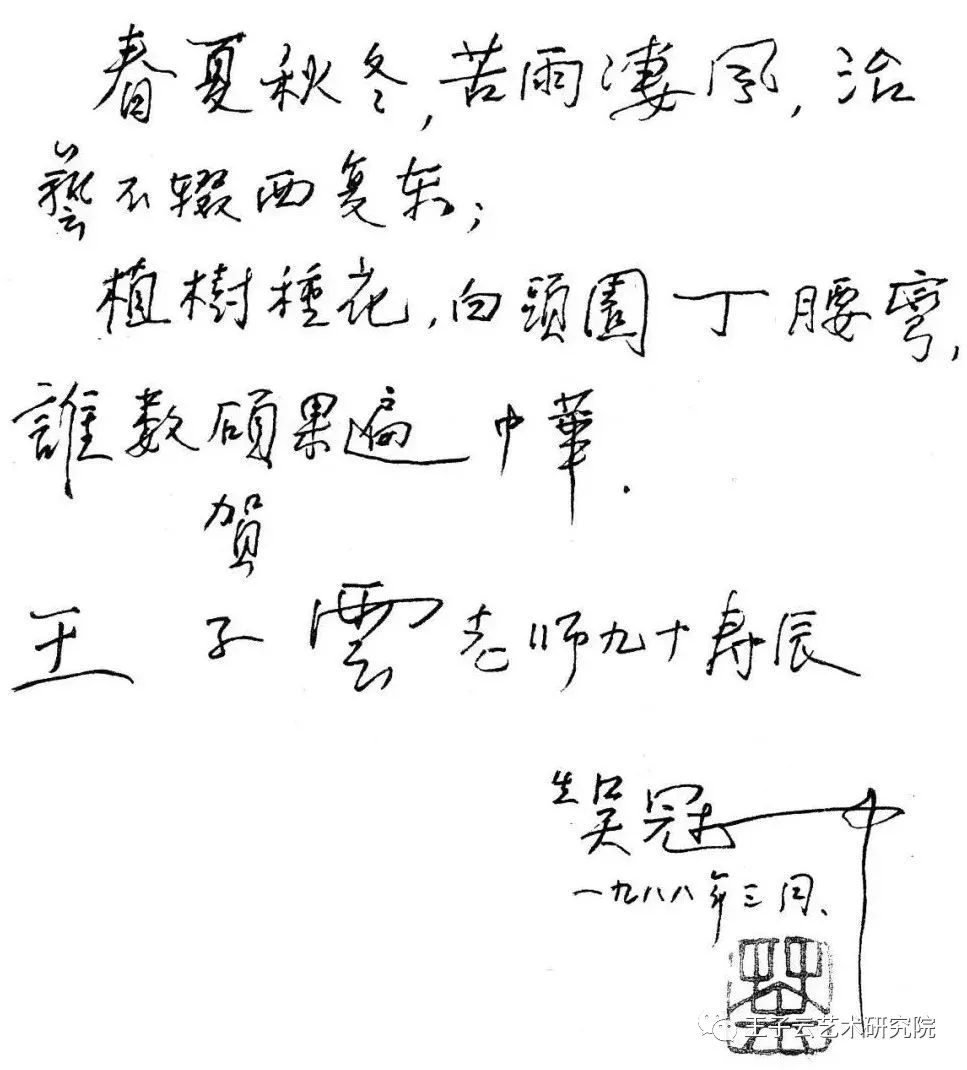 春夏秋冬,苦雨凄風,治
藝不辍西复东;
植樹種花,白頭園丁腰彎,
誰数碩果遍中華.
賀
王子雲老师九十寿辰
生吴冠中
一九八八年三月、
荼
王子云艺术研究院